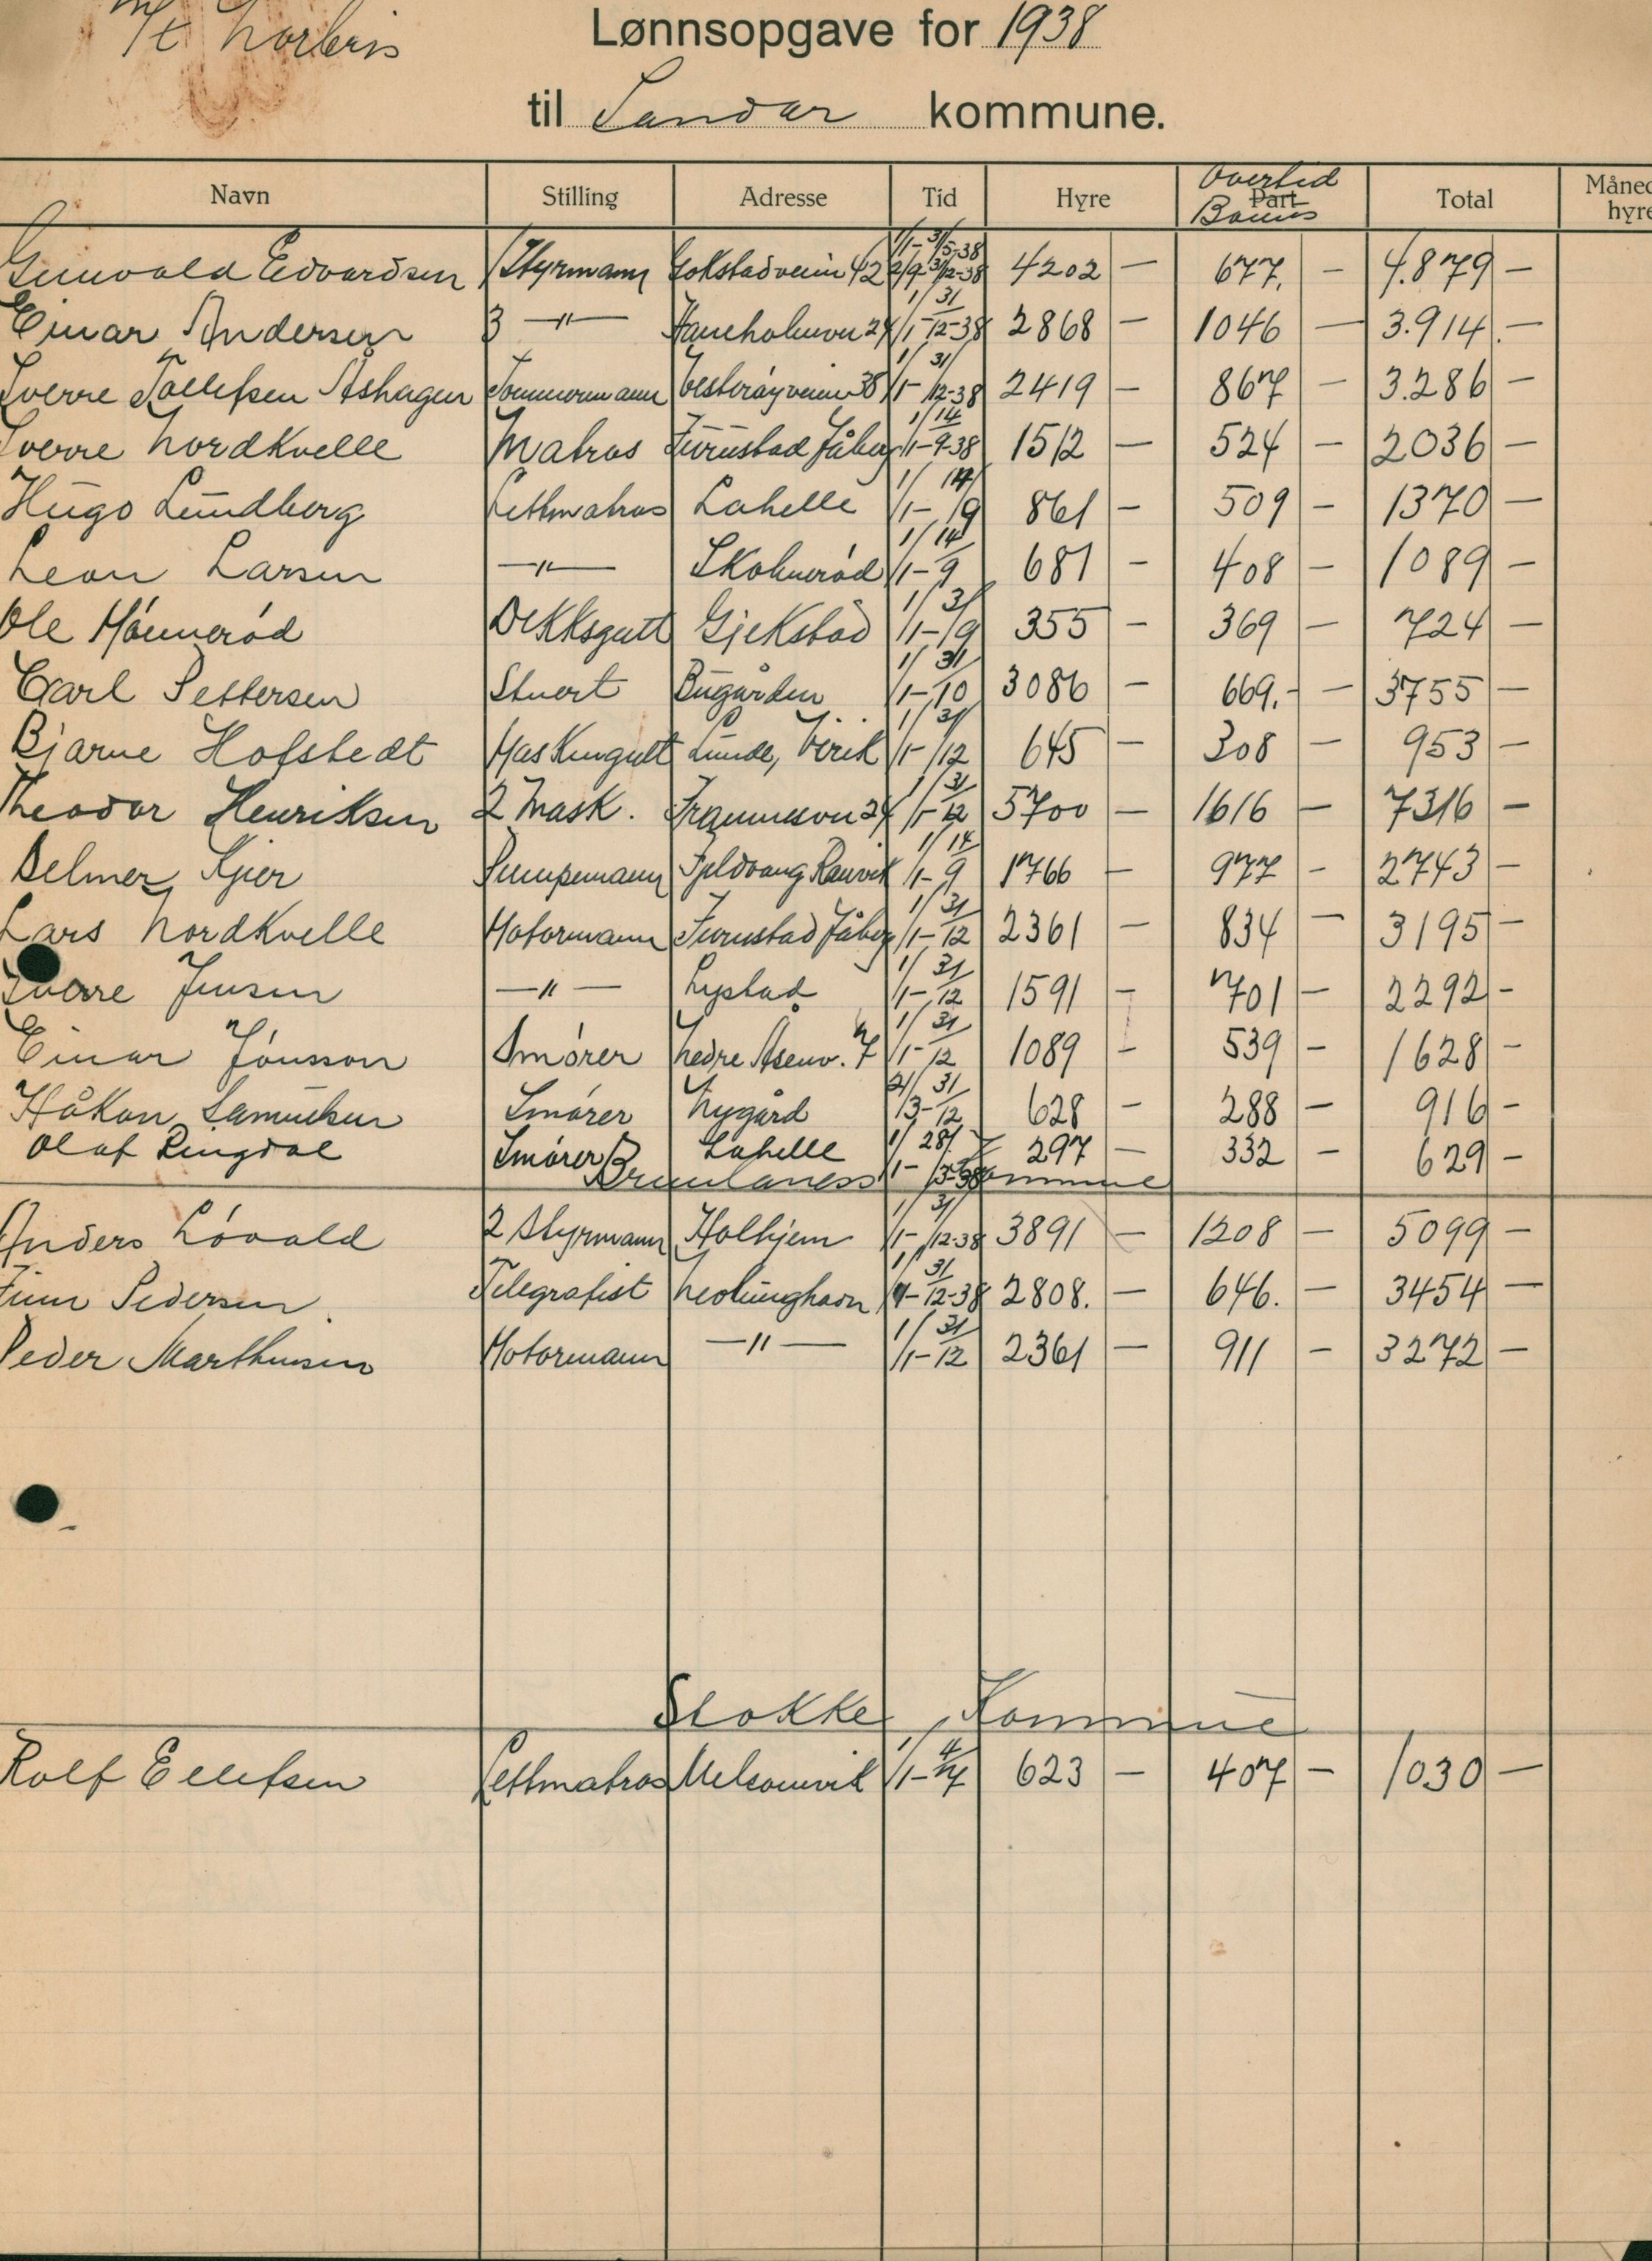 M/t Norbris
Lønnsopgave for 1938
til Sandar kommune.
Navn Stilling Adresse Tid Hyre Overtid Part Bonus Total Måned hyre
Gunvald Edvardsen 1 Styrmann Gokstadveien 42 1/1-31/5-38 2/9-31/12-38 4202 — 677. — 4.879 —
Einar Andersen 3 —"— 24 1/1-31/12-38 2868 — 1046 — 3.914. —
Sverre Tollefsen Åshagen Tømmermann Vesterøyveien 38 1/1-31/12-38 2419 — 867 — 3.286 —
Sverre Nordkvelle Matros Furustad Jåberg 1/1-14/9-38 1512 — 524 — 2036 —
Hugo Lundberg Lettmatros Lahelle 1/1-14/9 861 — 509 — 1370 —
Leon Larsen —"— Skolmerød 1/1-14/9 681 — 408 — 1089 —
Ole Hönnerød Dekksgutt Gjekstad 1/1-3/9 355 — 369 — 724 —
Carl Pettersen Stuert Bugården 1/1-31/10 3086 — 669.- — 3755 —
Bjarne Hofstedt Maskingutt Lunde, Virik 1/1-31/12 645 — 308 — 953 —
Theodor Henriksen 2 Mask. Framnesvn 24 1/1-31/12 5700 — 1616 — 7316 —
Delmer Kjær Pumpemann Fjeldvang Ranvik 1/1-14/9 1766 — 977 — 2743 —
Lars Nordkvelle Motormann Furustad Jåberg 1/1-31/12 2361 — 834 — 3195 —
Sverre Jensen —"— Lystad 1/1-31/12 1591 — 701 — 2292 —
Einar Jónsson Smører Nedre Åsenv. 7 1/1-31/12 1089 — 539 — 1628 —
Håkon Samuelsen Smører Nygård 21/3-31/12 628 — 288 — 916 —
Olaf Ringdal Smører Lahelle 1/1-28/3-38 297 — 332 — 629 —
Brunlanes Kommune
Anders Lövald 2 Styrmann Holhjem 1/1-31/12-38 3891 — 1208 — 5099 —
Finn Pedersen. Telegrafist Nevlunghavn 1/1-31/12-38 2808. — 646. — 3454 —
Peder Marthinsen Motormann —"— 1/1-31/12 2361 — 911 — 3272 —
Stokke Kommune
Rolf Ellefsen Lettmatros Melsomvik 1/1-4/7 623 — 407 — 1030 —